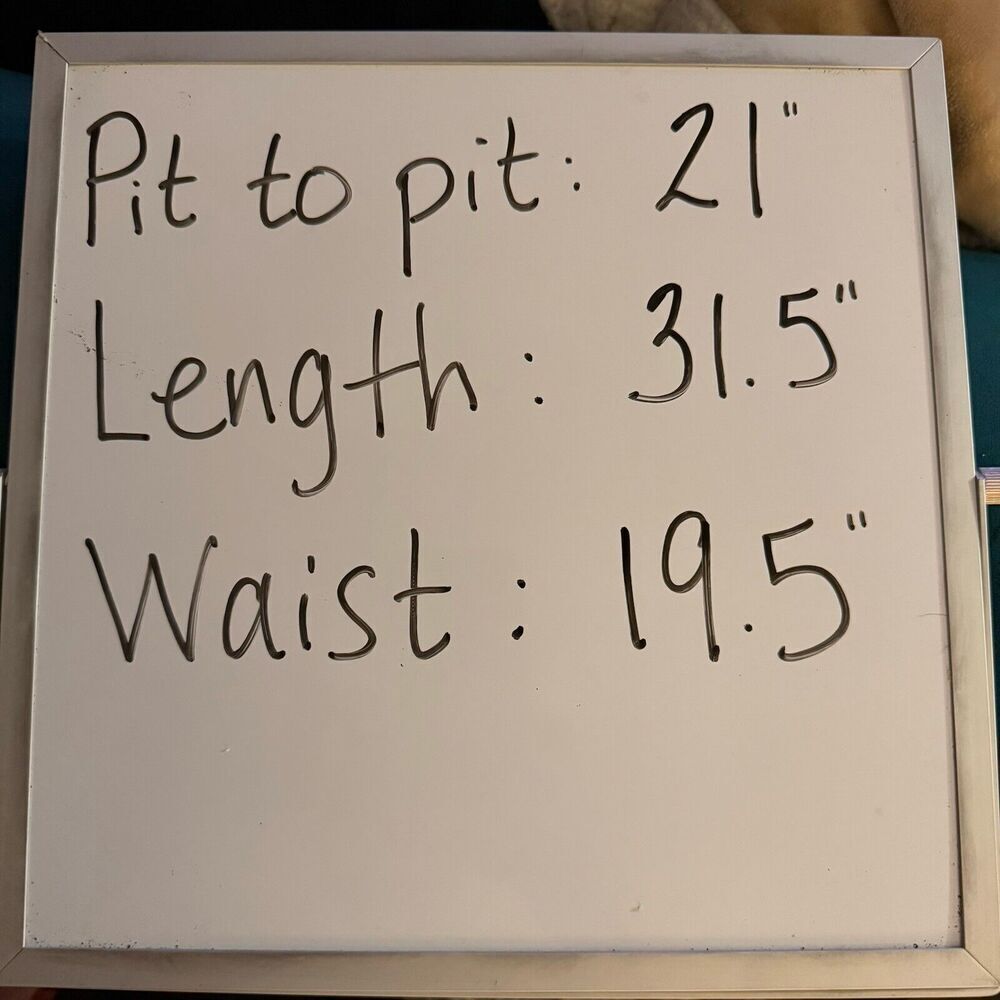 Pit to pit: 21"
Length: 31.5"
Waist: 19.5"